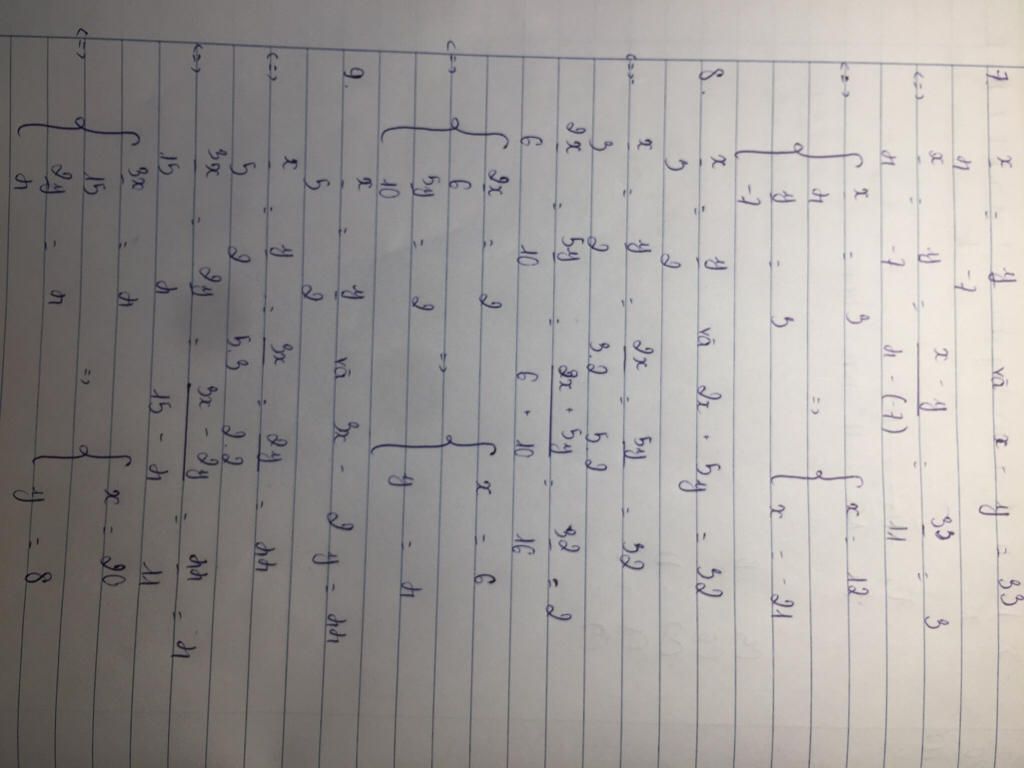 7. x/4 = y/-7 và x - y = 33
<=> x/4 = y/-7 = x - y/4 - (7) = 33/11 = 3
<=> { x/4 = 3 => { x = 12
y/-7 = 3 x = -21
8. x/3 = y/2 và 2x + 5y = 32
<=> x/3 = y/2 = 2x/3.2 = 5y/5.2 = 32
2x/6 = 5y/10 = 2x + 5y/6 + 10 = 32/16 = 2
<=> { 2x/6 = 2 => { x = 6
5y/10 = 2 y = 4
9. x/5 = y/2 và 3x - 2y = 44
<=> x/5 = y/2 = 3x/5.3 = 2y/2.2 = 44
<=> 3x/15 = 2y/4 = 3x - 2y/15 - 4 = 44/11 = 4
<=> { 3x/15 = 4 => { x = 20
2y/4 = 4 y = 8